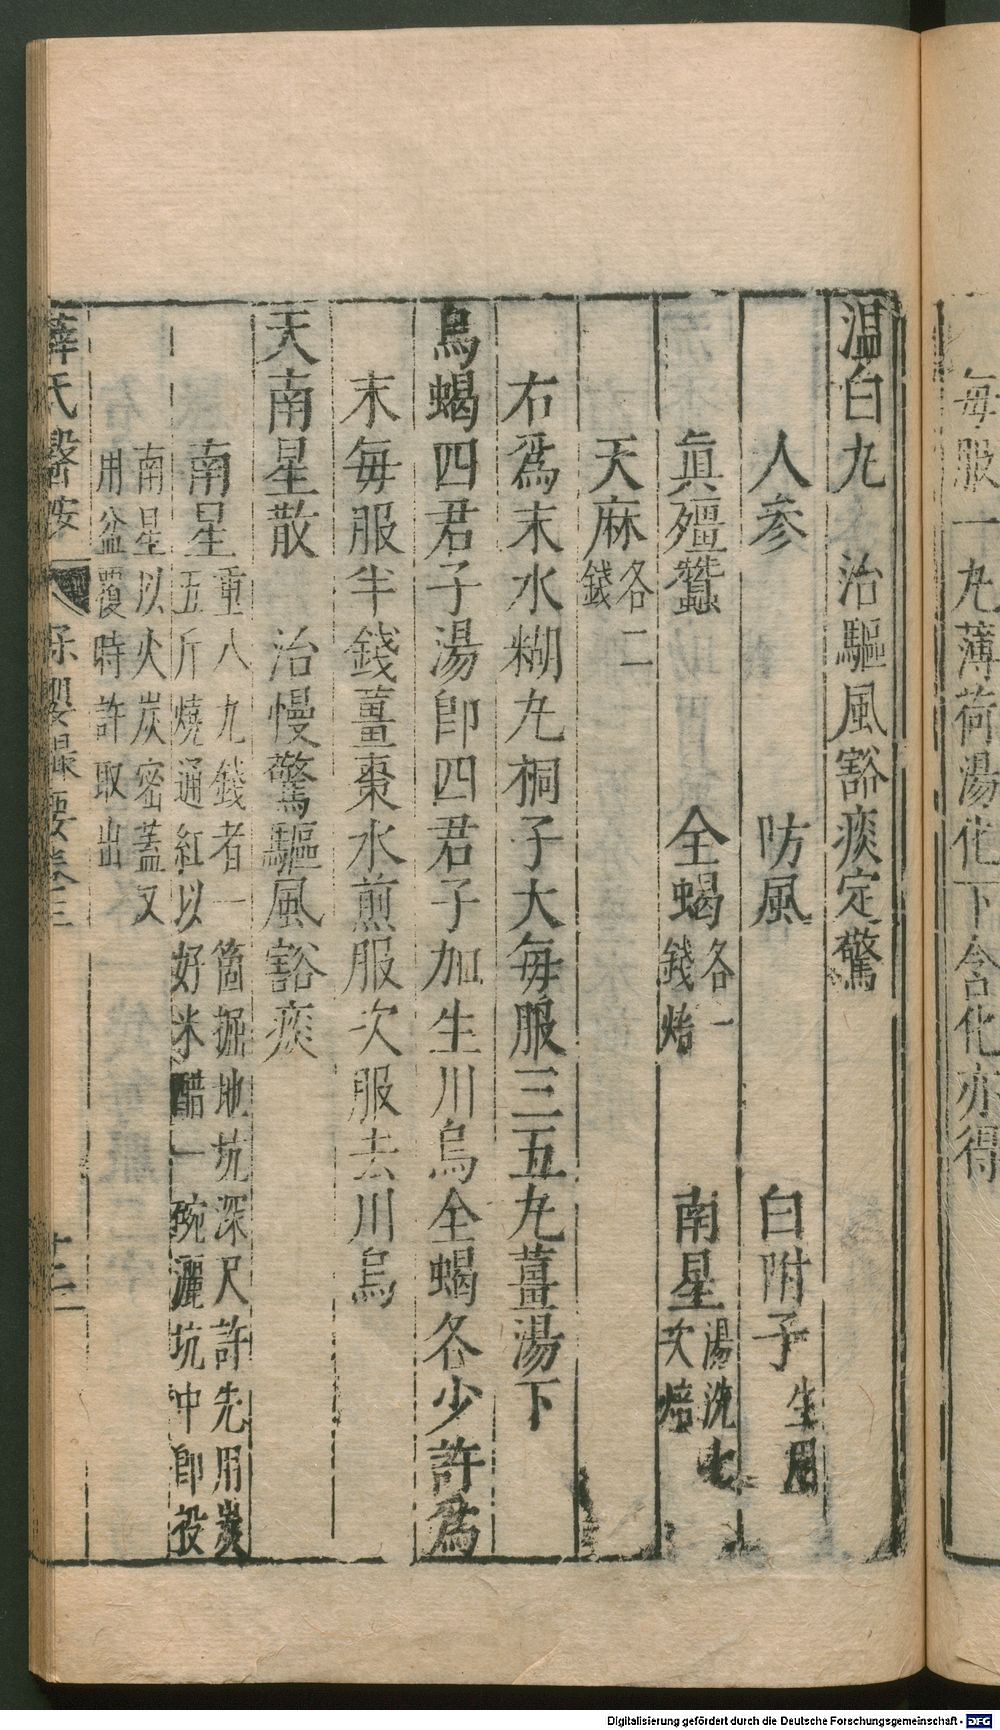 毎服一丸薄荷湯化下含化亦得
温白丸　治驅風豁痰定驚
人參　防風　白附子生用
眞殭蠶　全蝎各一錢焙　南星湯洗七次焙
天麻各二錢
右爲末水糊丸梧子大毎服三五丸薑湯下
烏蝎四君子湯卽四君子加生川烏全蝎各少許爲
末毎服半錢薑棗水煎服次服去川烏
天南星散　治慢驚驅風豁痰
南星重八九錢者一箇掘地坑深尺許先用炭
五斤燒通紅以好米醋一碗灑坑中卽投
南星以火炭密蓋又
用盆覆時許取出
薛氏醫按　保嬰撮要卷三　十二
Digitalisierung gefördert durch die Deutsche Forschungsgemeinschaft - DFG